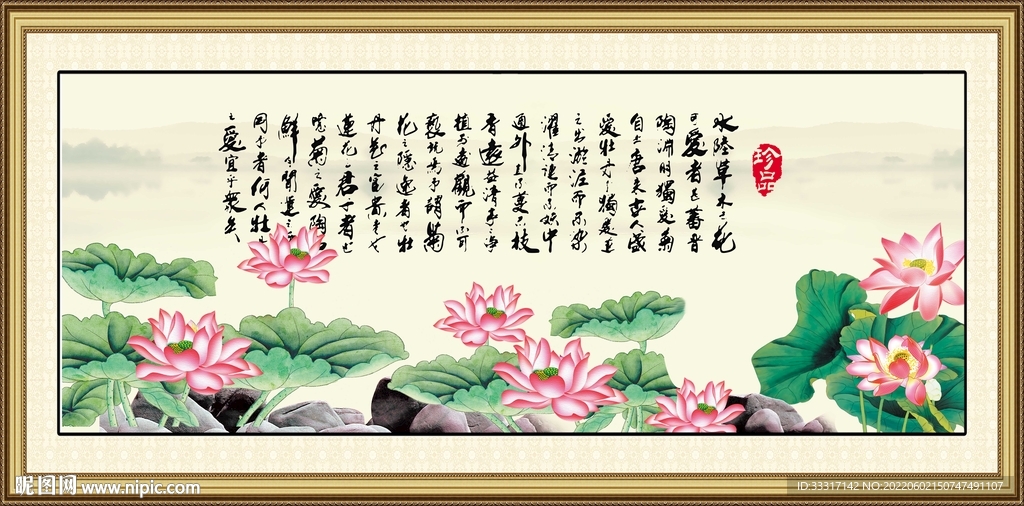 珍品
水陸草木之花
可愛者甚蕃晉
陶淵明獨愛菊
自李唐来世人盛
愛牡丹予獨愛蓮
之出淤泥而不染
濯清漣而不妖中
通外直不蔓不枝
香遠益清亭亭淨
植可遠觀而不可
褻玩焉予謂菊
花之隱逸者也牡
丹花之富貴者也
蓮花之君子者也
噫菊之愛陶
鮮有聞蓮之
同予者何人牡
之愛宜乎眾矣
昵图网 www.nipic.com
ID:33317142 NO:20220602150747491107